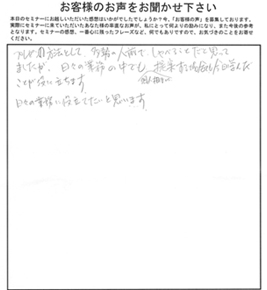 お客様のお声をお聞かせ下さい
本日のセミナーにお越しいただいた感想はいかがでしたでしょうか？今、「お客様の声」を募集しております。
実際にセミナーに来ていただいたあなた様の率直なお声が、私にとって何よりの励みになり、また今後の参考
となります。セミナーの感想、一番心に残ったフレーズなど、何でもありですので、お気づきのことをお寄せ
ください。
方法として、大勢の人前で しゃべることだと思って
ましたが、日々の業務の中でも、提案する
ことが役に立ちます。
日々の業務に役立てたいと思います。